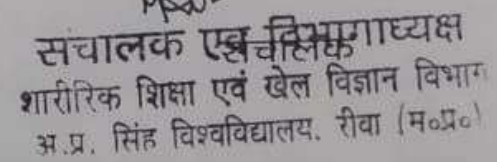 संचालक एवं विभागाध्यक्ष
शारीरिक शिक्षा एवं खेल विज्ञान विभाग
अ.प्र. सिंह विश्वविद्यालय. रीवा (म०प्र०)